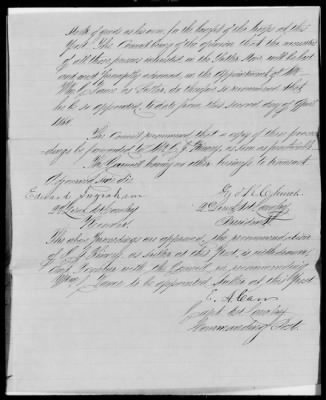 stock of goods as his own, for the benefit of the troops at this
Post. The Council being of the opinion that the interests
of all those persons interested in the Sutler Store will be best
and most promptly advanced, in the appointment of Mr.
Wm. as Sutler, do therefore recommend that
he be so appointed, to date from this second day of April
1860.
The Council recommend that a copy of these procee-
dings be forwarded to Mr. C. J. as soon as practicable.
The Council having no other business to transact
Adjourned Sine die
Edward Ingraham
2d Lieut. 1st Cavalry
Recorder
G. A. K. Church
2d Lieut. 1st Cavalry
President
The above proceedings are approved, the recommendation
of C. J. as Sutler at this Post, is withdrawn,
and I concur with the Council, in recommending
Wm. to be appointed Sutler at this Post
E. A. Carr
Capt. 1st Cavalry
Commanding Post.